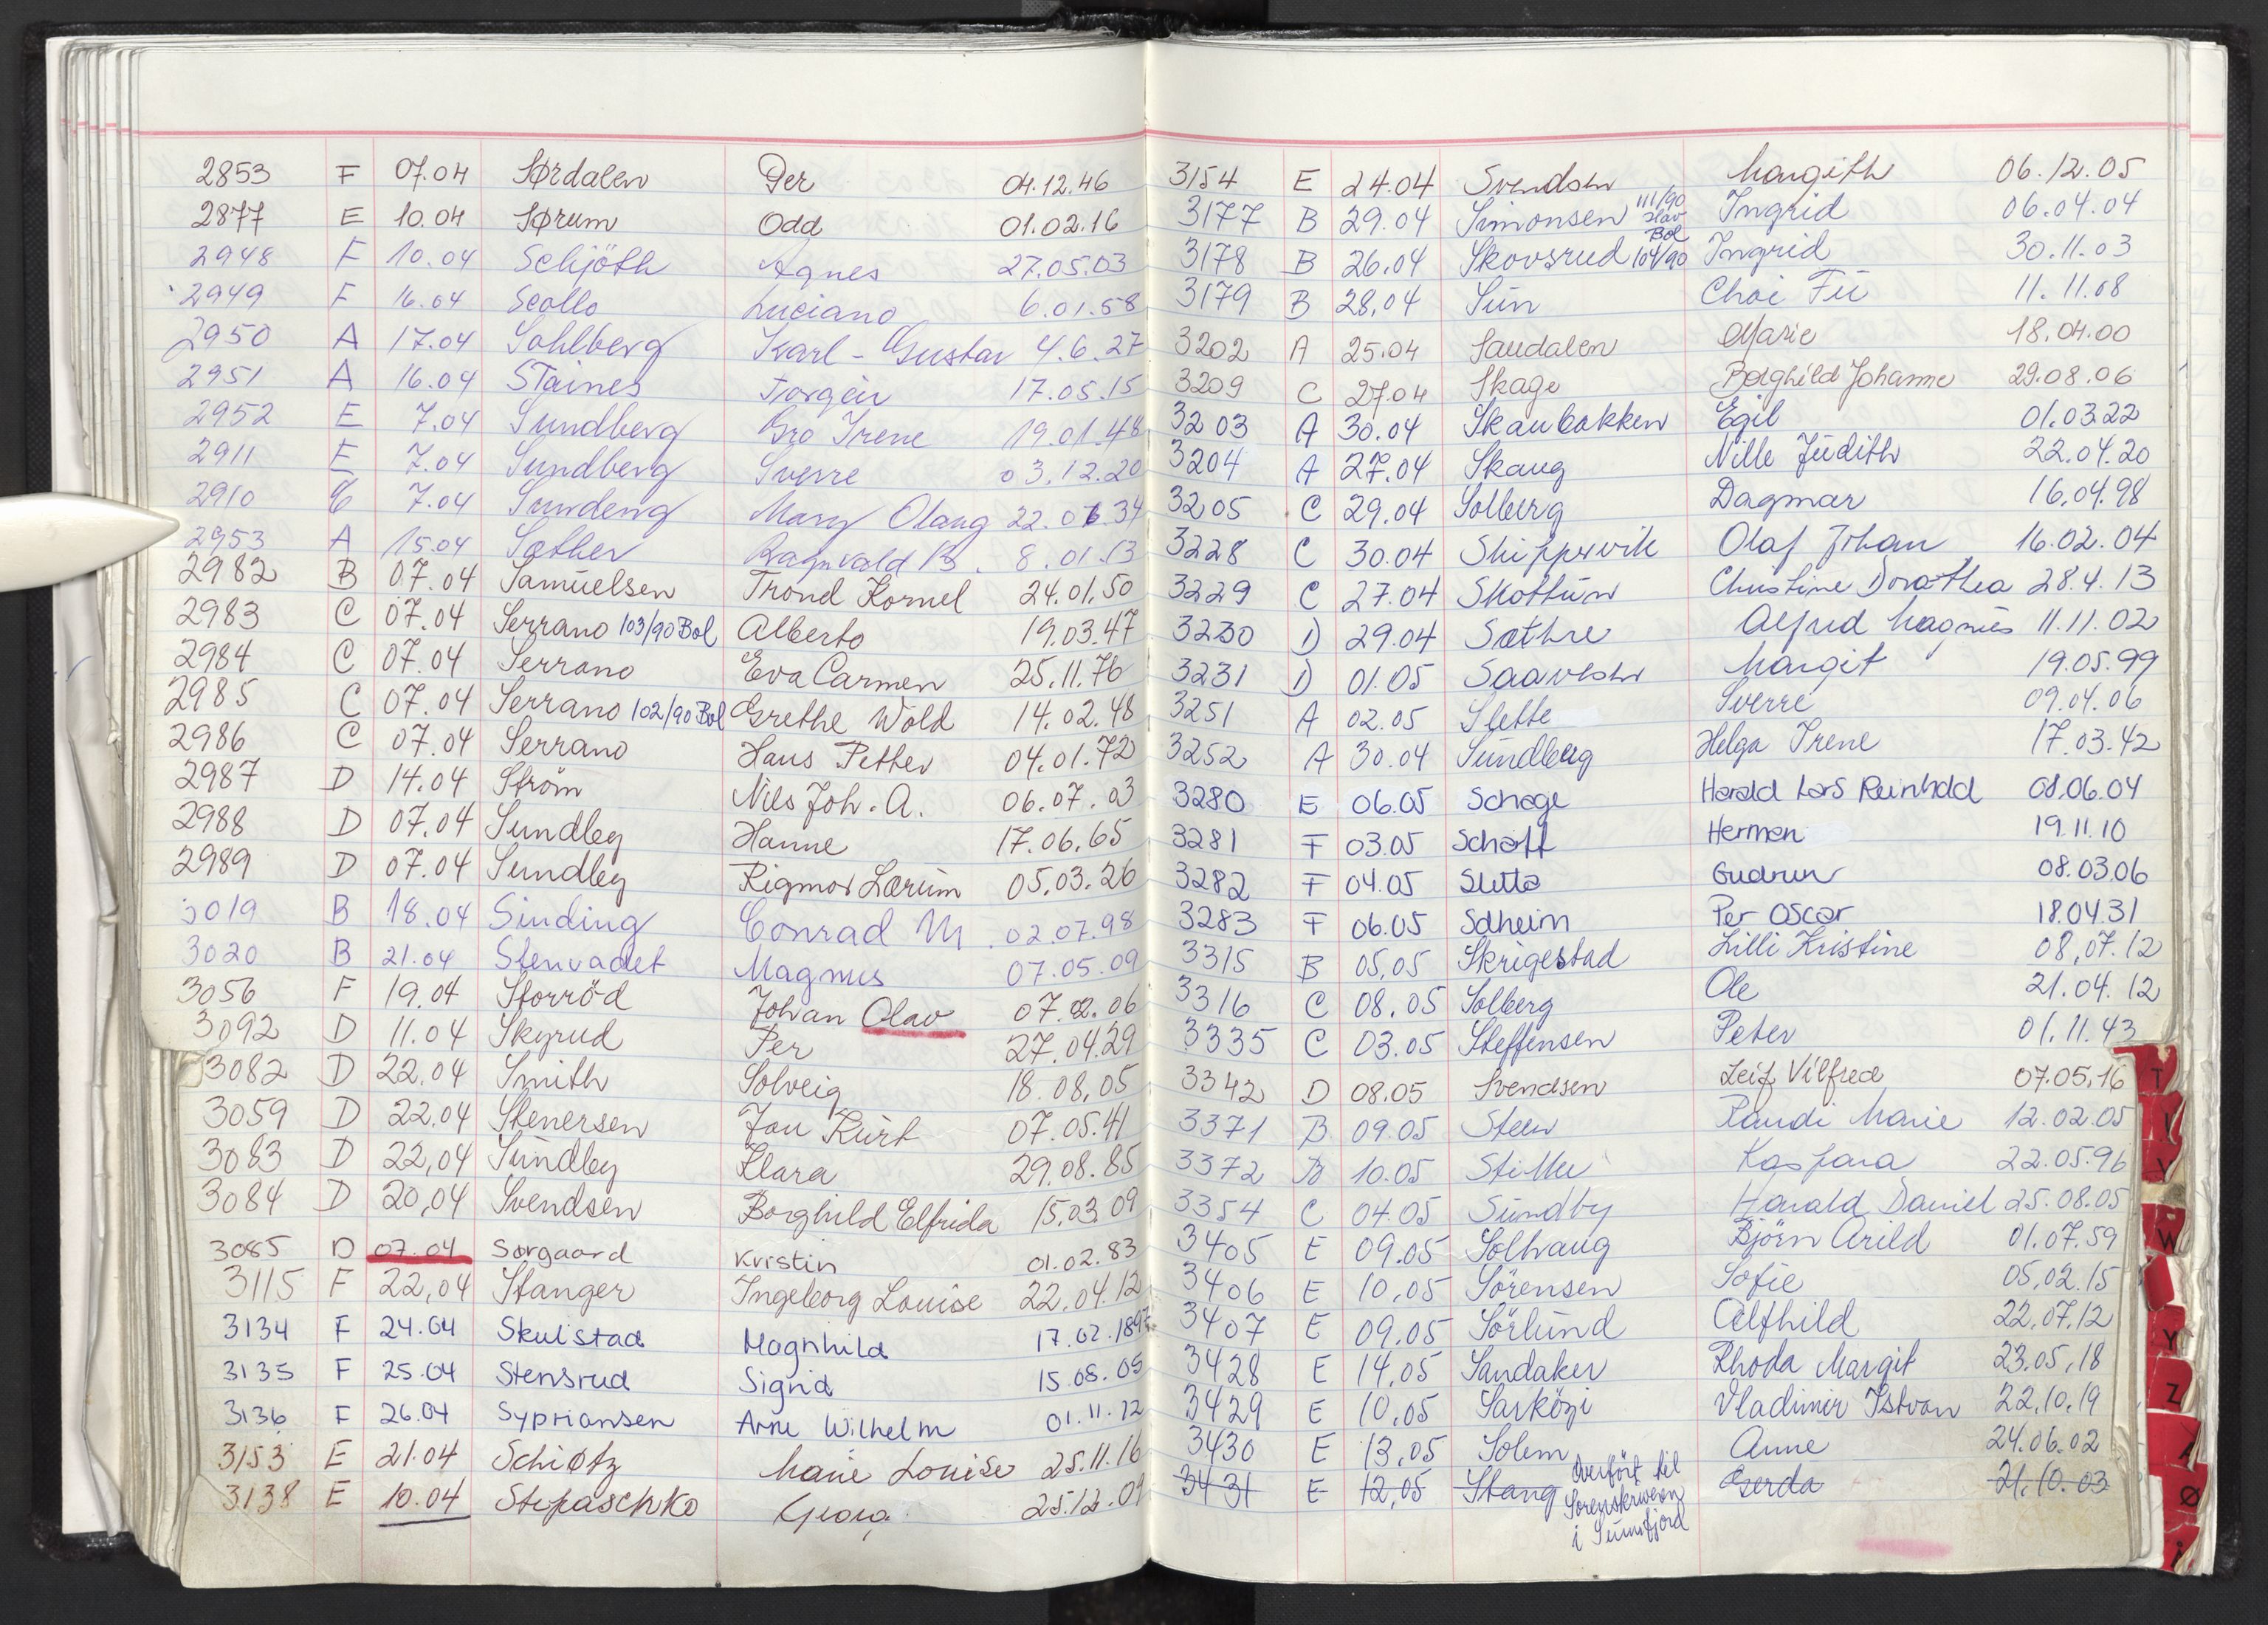 2853 F 07.04 Sørdalen Per 04.12.46
2877 E 10.04 Sørum Odd 01.02.16
2948 F 10.04 Schjöth Agnes 27.05.03
2949 F 16.04 Scollo Luciano 6.01.58
2950 A 17.04 Sohlberg Karl-Gustav 4.6.27
2951 A 16.04 Staines Jorgen 17.05.15
2952 E 7.04 Sundberg Gro Irene 19.01.48
2911 E 7.04 Sundberg Sverre 03.12.20
2910 E 7.04 Mary Olaug 22.06.34
2953 A 15.04 Sæther Ragnvald B. 8.01.13
2982 B 07.04 Samuelsen Trond Kornel 24.01.50
2983 C 07.04 Serrano 103/90 Bol Alberto 19.03.47
2984 C 07.04 Serrano Eva Carmen 25.11.76
2985 C 07.04 Serrano 102/90 Bol Grethe Wold 14.02.48
2986 C 07.04 Serrano Hans Petter 04.01.72
2987 D 14.04 Ström Nils Joh. A. 06.07.03
2988 D 07.04 Sundby Hanne 17.06.65
2989 D 07.04 Sundby Rigmor Lærum 05.03.26
3019 B 18.04 Sinding Conrad M. 02.07.98
3020 B 21.04 Stenvadet Magnus 07.05.09
3056 F 19.04 Storröd Johan Olav 07.02.06
3092 D 11.04 Skyrud Per 27.04.29
3082 D 22.04 Smith Solveig 18.08.05
3059 D 22.04 Stenersen Jan Kurt 07.05.41
3083 D 22,04 Sundby Klara 29.08.85
3084 D 20,04 Svendsen Borghild Elfrida 15.03.09
3085 D 07.04 Sørgaard Kristin 01.02.83
3115 F 22,04 Stanger Ingeborg Louise 22.04.12
3134 F 24.04 Skulstad Magnhild 17.02.1897
3135 F 25.04 Stensrud Sigrid 15.08.05
3136 F 26.04 Sypriansen Arne Wilhelm 01.11.12
3153 E 21.04 Schiøtz Marie Louise 25.11.16
3138 E 10.04 Stepaschko Georg 25.12.09
3154 E 24.04 Svendsen Margith 06.12.05
3177 B 29.04 Simonsen 111/90 Ingrid 06.04.04
3178 B 26.04 Skovsrud Bol 104/90 Ingrid 30.11.03
3179 B 28,04 Sun Choi Fu 11.11.08
3202 A 25.04 Saudalen Marie 18.04.00
3209 C 27.04 Skage Borghild Johanne 29.08.06
3203 A 30.04 Skaubakken Egil 01.03.22
3204 A 27.04 Skaug Nille Judith 22.04.20
3205 C 29.04 Solberg Dagmar 16.04.98
3228 C 30.04 Skippervik Olaf Johan 16.02.04
3229 C 27.04 Skottun Christine Dorothea 28.4.13
3230 D 29.04 Sæthre Alfred Magnus 11.11.02
3231 D 01.05 Margit 19.05.99
3251 A 02.05 Slette Sverre 09.04.06
3252 A 30.04 Sundberg Helga Irene 17.03.42
3280 E 06.05 Schage Harald Lars Reinhold 08.06.04
3281 F 03.05 Herman 19.11.10
3282 F 04.05 Sletta Gudrun 08.03.06
3283 F 06.05 Solheim Per Oscar 18.04.31
3315 B 05,05 Skrigestad Lilli Kristine 08,07.12
3316 C 08.05 Solberg Ole 21.04.12
3335 C 03.05 Steffensen Peter 01.11.43
3342 D 08.05 Svendsen Leif Vilfred 07.05.16
3371 B 09.05 Steen Randi Marie 12.02.05
3372 B 10.05 Kaspara 22.05.96
3354 C 04.05 Sundby Harald Daniel 25.08.05
3405 E 09.05 Solhaug Björn Arild 01.07.59
3406 E 10,05 Sörensen Sofie 05,02.15
3407 E 09,05 Sörlund Alfhild 22,07,12
3428 E 14,05 Sandaker Rhoda Margit 23.05,18
3429 E 10,05 Sarközi Vladimir Istvan 22,10,19
3430 E 13,05 Solem Anne 24.06.02
3431 E 12,05 Stang Gerda 21.10.03
Overført til
Sorenskriveren
i Sunnfjord
T
V
W
Y
Z
Ø